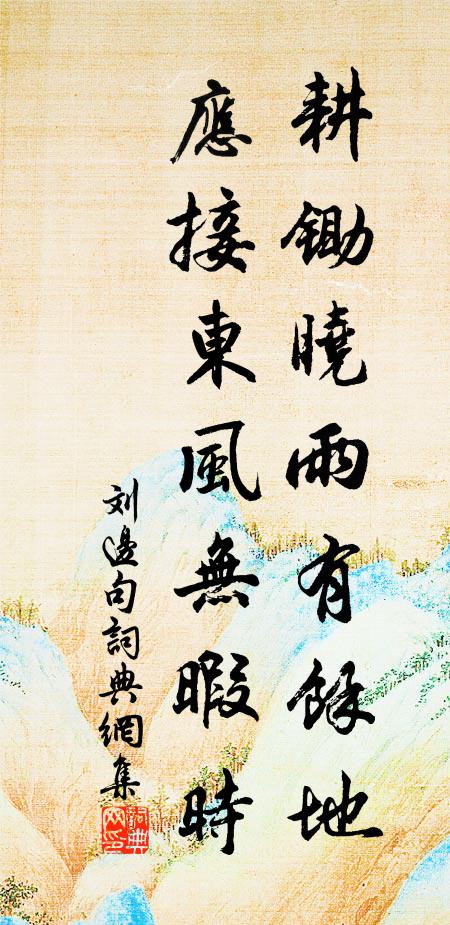 耕鋤曉雨有餘地
應接東風無暇時
刘邊句詞典網集
詞典
网印